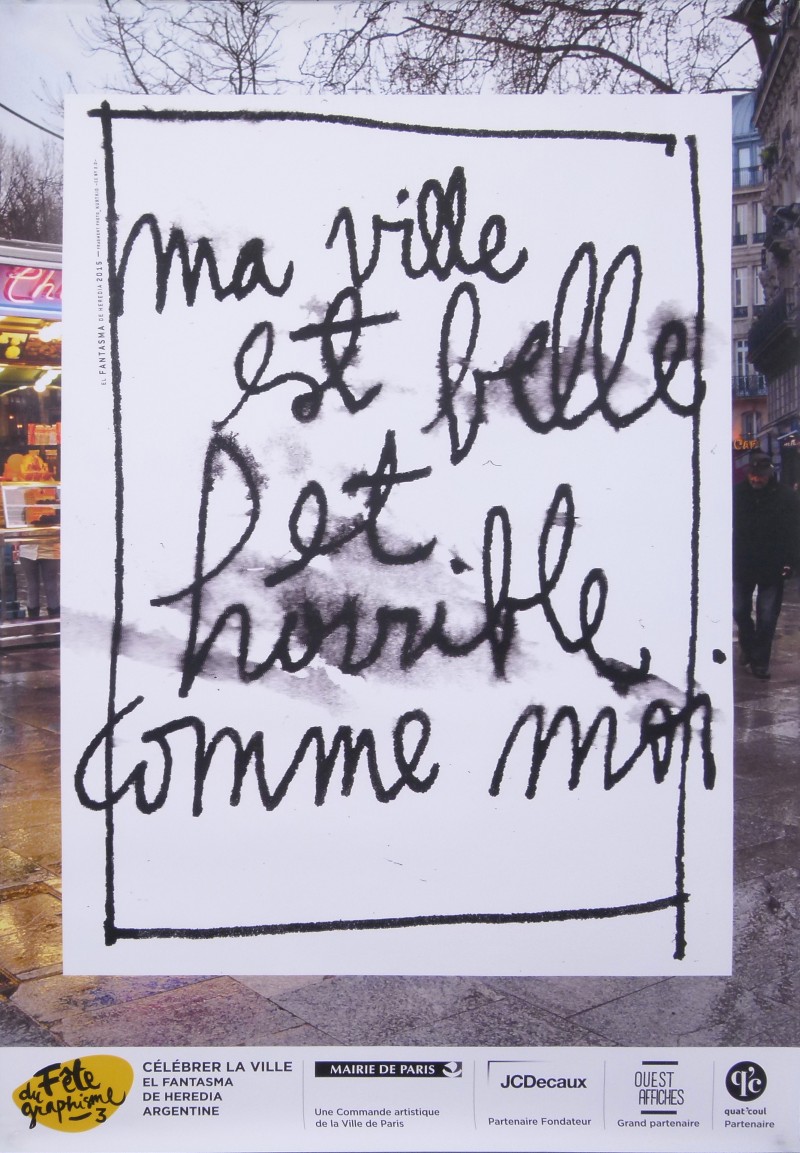 Ch
EL FANTASMA DE HEREDIA 2015
ma ville
est belle
et
horrible
comme moi
CAFE
Fête
du
graphisme
3
CÉLÉBRER LA VILLE
EL FANTASMA
DE HEREDIA
ARGENTINE
MAIRIE DE PARIS
Une Commande artistique
de la Ville de Paris
JCDecaux
Partenaire Fondateur
OUEST
AFFICHES
Grand partenaire
q'c
quat'coul
Partenaire